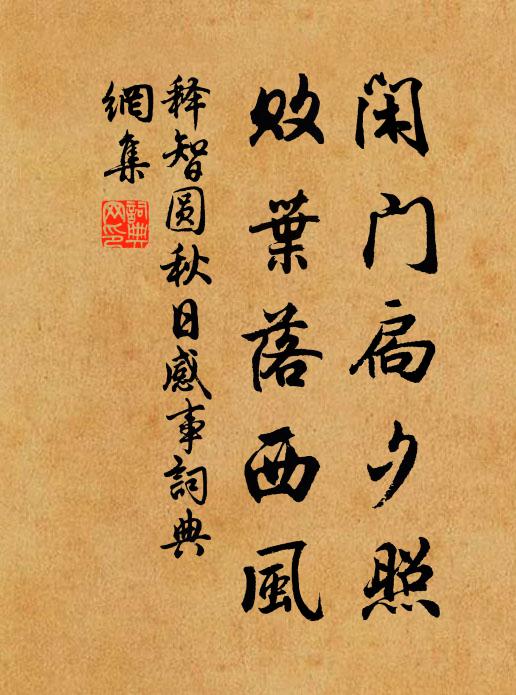 閑门扃夕照
败葉落西風
释智圆秋日感事詞典
網集
詞典
网印